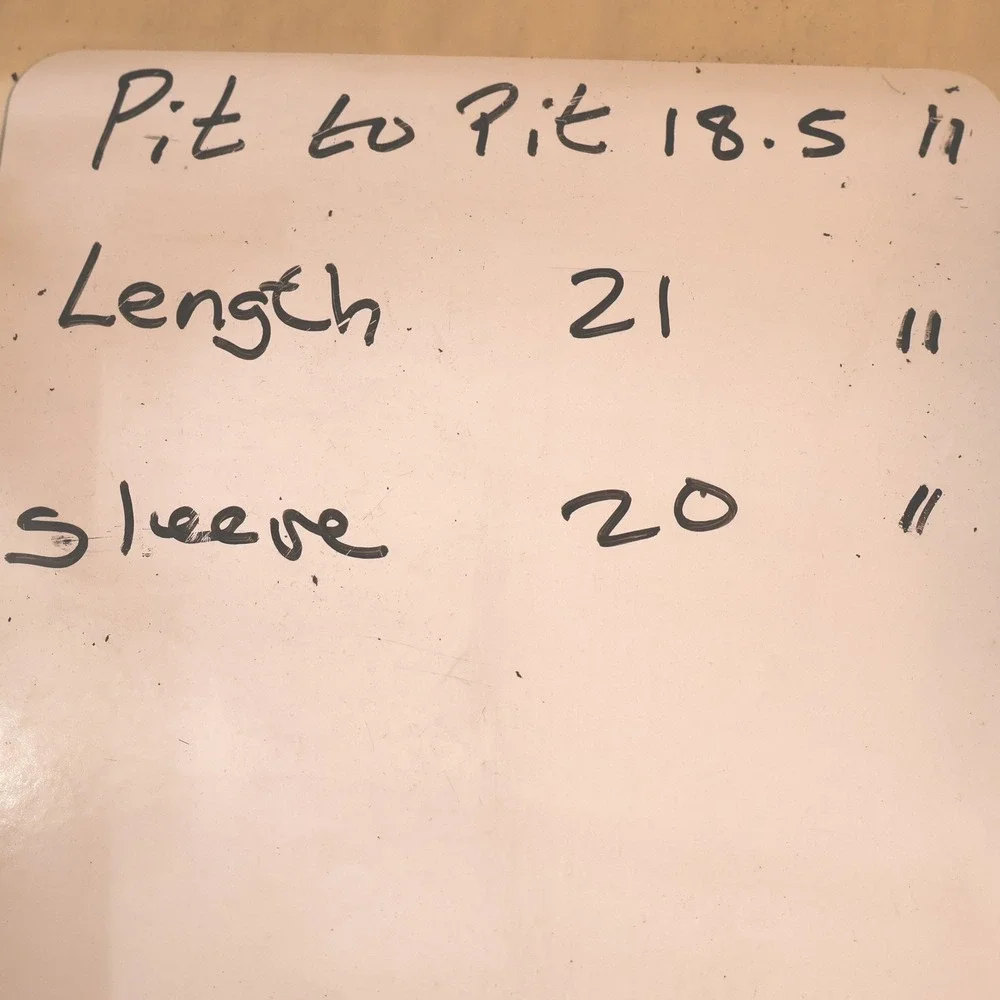 Pit to Pit 18.5 "
Length 21 "
Sleeve 20 "